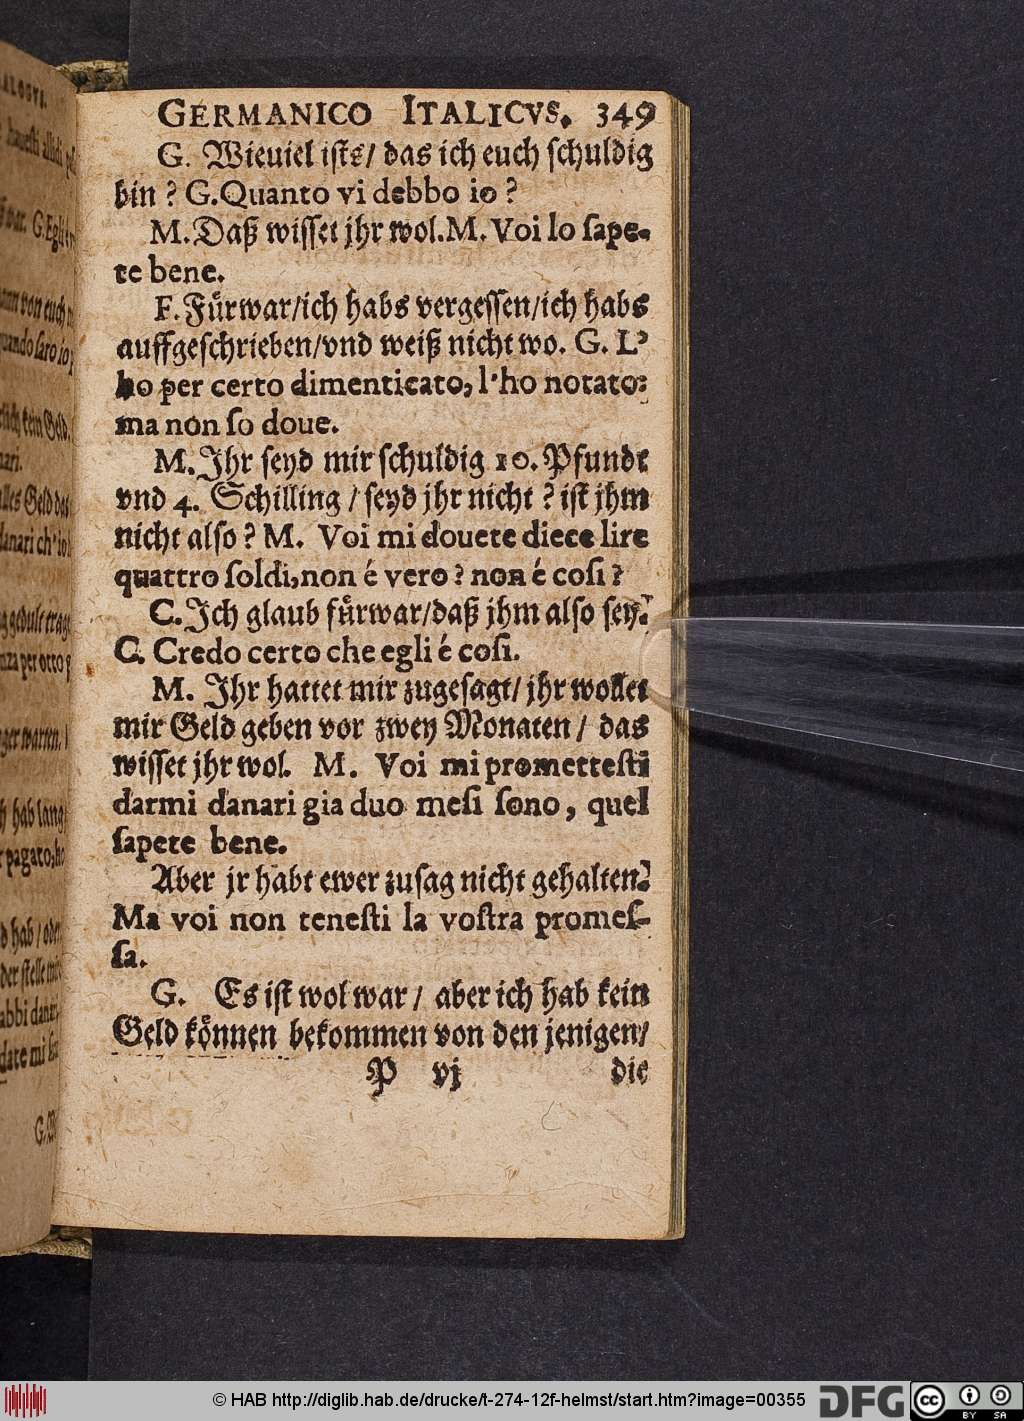 GERMANICO ITALICVS. 349
G. Wieuiel ists/ das ich euch ſchuldig
bin? G. Quanto vi debbo io?
M. Daß wiſſet jhr wol. M. Voi lo ſape-
te bene.
F. Fuͤrwar/ich habs vergeſſen/ich habs
auffgeſchrieben/vnd weiß nicht wo. G. L'
ho per certo dimenticato, l'ho notato:
ma non ſo doue.
M. Jhr ſeyd mir ſchuldig 10. Pfundt
vnd 4. Schilling / ſeyd jhr nicht? iſt jhm
nicht alſo? M. Voi mi douete diece lire
quattro ſoldi, non é vero? non é coſi?
C. Jch glaub fuͤrwar/daß jhm alſo ſey.
C. Credo certo che egli é coſi.
M. Jhr hattet mir zugeſagt/ jhr wollet
mir Geld geben vor zwey Monaten / das
wiſſet jhr wol. M. Voi mi prometteſti
darmi danari gia duo meſi ſono, quel
ſapete bene.
Aber jr habt ewer zuſag nicht gehalten.
Ma voi non teneſti la voſtra promeſ-
ſa.
G. Es iſt wol war / aber ich hab kein
Geld koͤnnen bekommen von den jenigen/
P vj die
© HAB http://diglib.hab.de/drucke/t-274-12f-helmst/start.htm?image=00355
DFG
cc BY SA